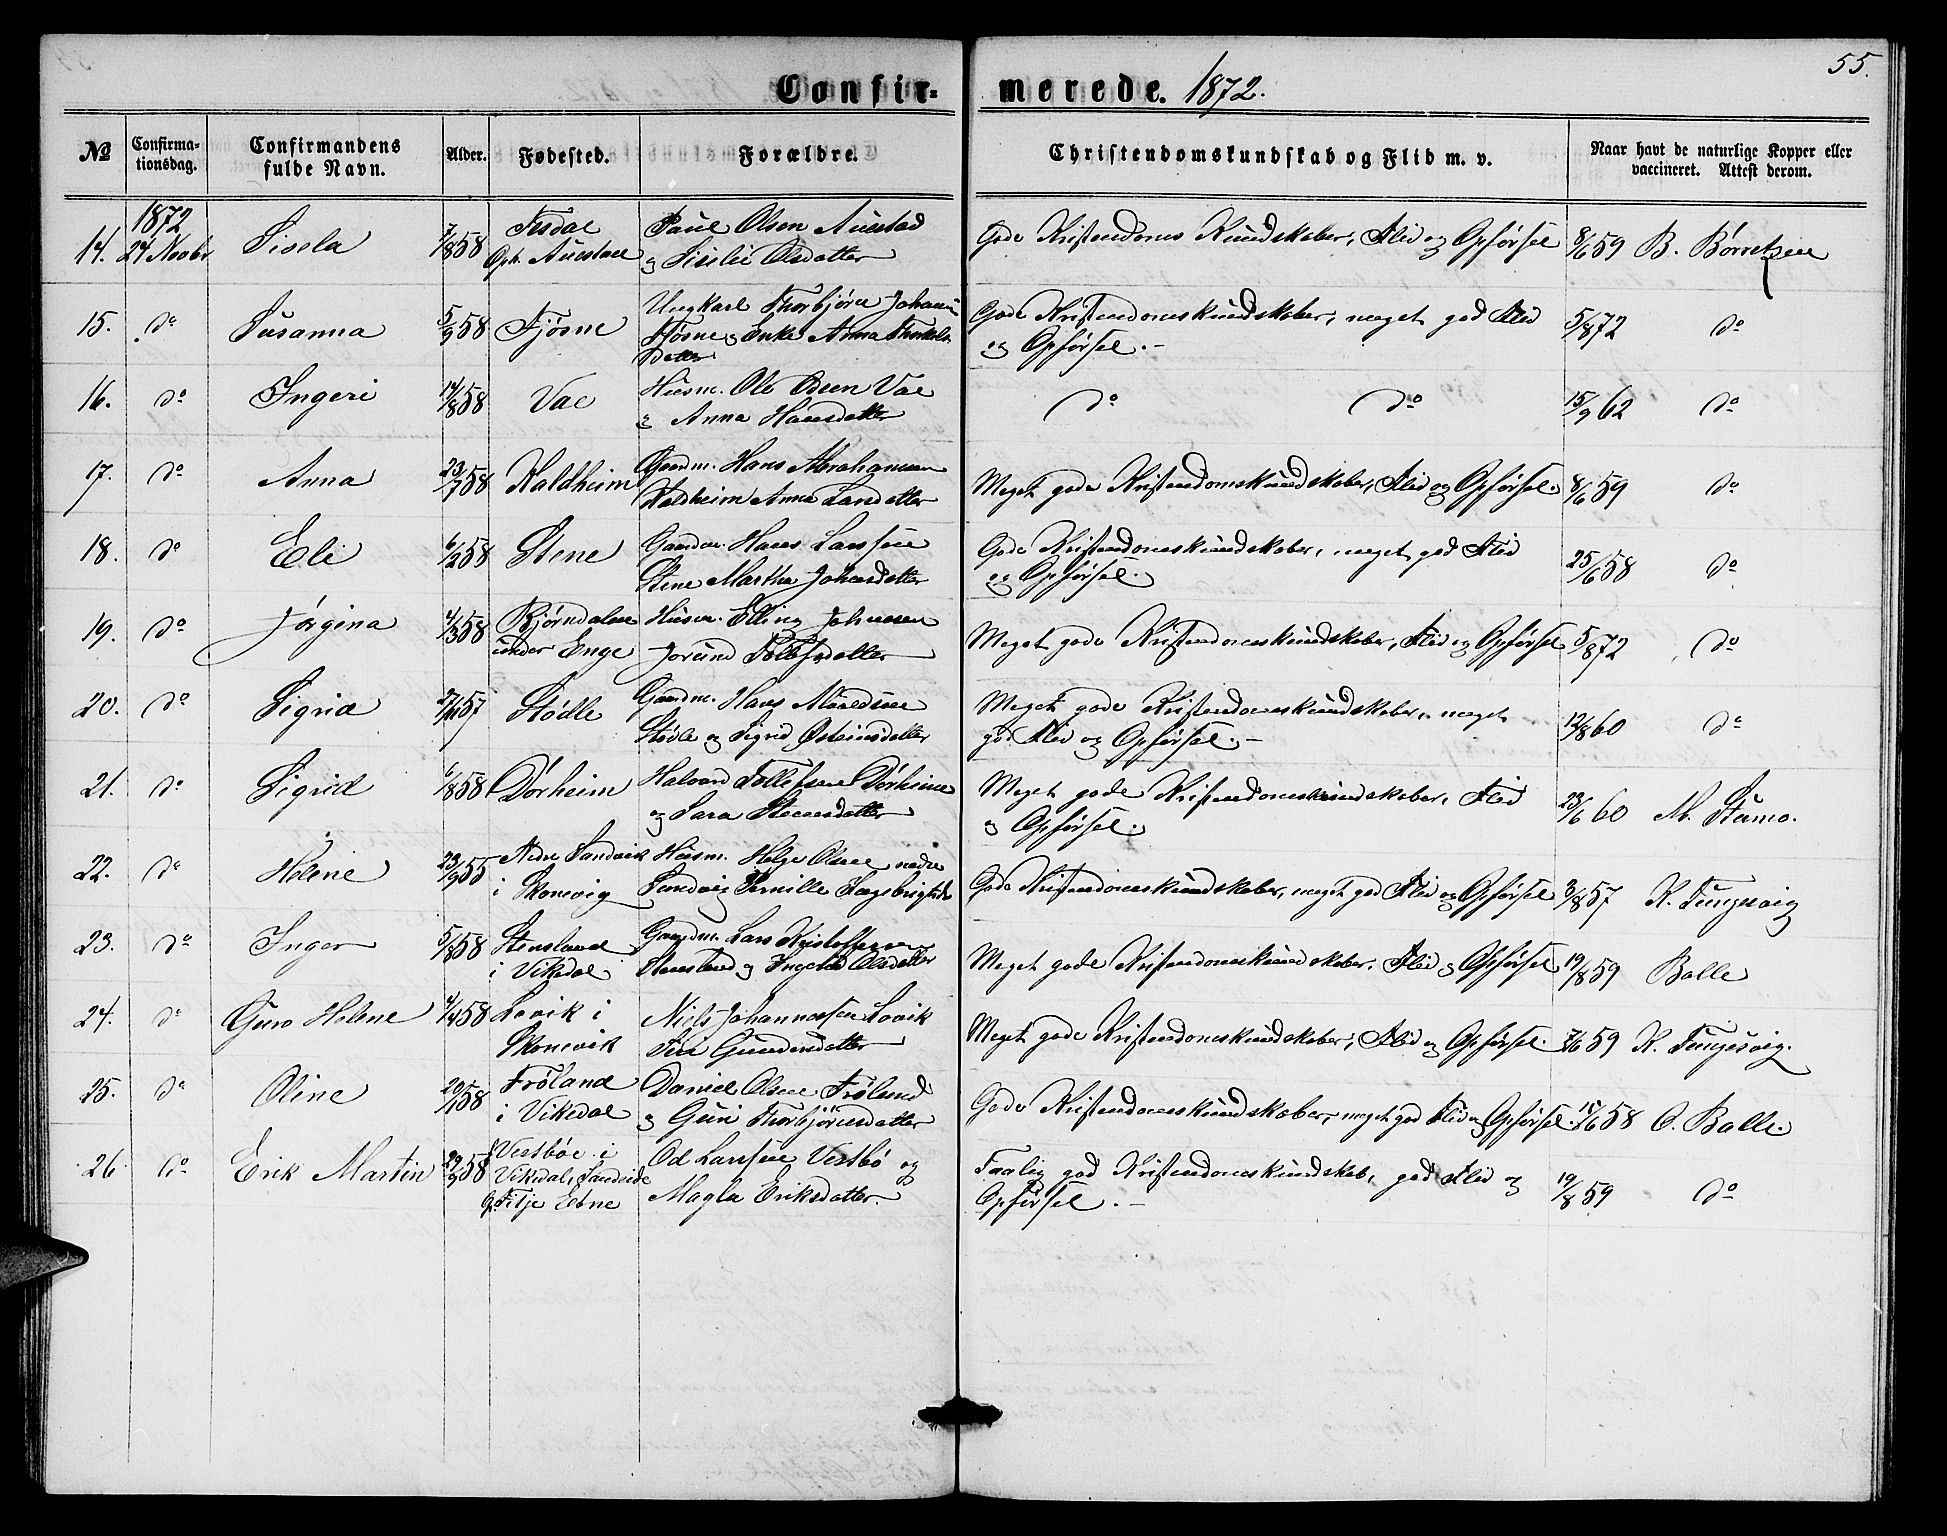 55.
Confirmerede. 1872.
№ Confirmationsdag. Confirmandens fulde Navn. Alder. Fødested. Forældre. Christendomskundskab og Flid m. v. Naar havt de naturlige Kopper eller vaccineret. Attest derom.
1872
14. 24 Novbr Sisela 7/8 58 Opf. Auestad Paul Olsen Auestad og Siselie Olsdatter Gode Kristendoms Kundskaber, Flid og Opførsel 8/6 59 B. Børretzen
15. do Susanna 5/9 58 Fjøsne Ungkarl Thorbjørn Johans: Fjøsne og Enke Anna Thorkelsdatter Gode Kristendomskundskaber, meget god Flid og Opførsel.- 5/8 72 do
16. do Ingeri 14/8 58 Vae Husm. Ole Odsen Vae og Anna Hansdatter do do 15/9 62 do
17. do Anna 23/7 58 Haldheim Gaardm. Hans Abrahamsen Haldheim Anna Larsdatter Meget gode Kristendomskundskaber, Flid og Opførsel. 8/6 59 do
18. do Eli 6/2 58 Stene Gaardm. Hans Larssen Stene Martha Johansdatter Gode Kristendomskundskaber, meget god Flid og Opførsel. 25/6 58 do
19. do Jørgina 4/3 58 Bjørndalen under Enge Husm. Elling Johnsen Jorund Tollefsdatter Meget gode Kristendomskundskaber, Flid og Opførsel 5/8 72 do
20. do Sigrid 27/11 57 Stødle Gaardm. Hans Stødle og Sigrid Østeinsdatter Meget gode Kristendomskundskaber, meget god Flid og Opførsel.- 12/8 60 do
21. do Sigrid 6/8 58 Dørheim Halvard Tollefsen Dørheim og Sara Steensdatter Meget gode Kristendomskundskaber, Flid og Opførsel. 23/6 60 M. Stumo.
22. do Helene 23/9 55 Nedre Sandvik i Skonevig Husm. Helge Olsen nedre Sandvig Pernille Meget gode Kristendomskundskaber, meget god Flid og Opførsel 3/8 57 K. Tungesvig
23. do Inger 5/8 58 Stensland i Vikedal Gaardm. Lars Kristoffersen Stensland og Ingebor Olsdatter Meget gode Kristendomskundskaber, Flid og Opførsel 19/8 59 Balle
24. do Guro Helene 4/4 58 Lovik i Skonevik Niels Johannessen Lovik Siri Gundersdatter Meget gode Kristendomskundskaber, Flid og Opførsel. 7/6 59 K. Tungesvig.
25. do Oline 20/1 58 Frøland i Vikedal Daniel Olsen Frøland og Guri Thorbjørnsdatter Gode Kristendomskundskaber, meget god Flid og Opførsel. 15/6 58 O. Balle.
26. do Erik Martin 29/9 58 Vestbøe i Vikedal, Sandeide Opf. Fitje Eine Od Larssen Vestbø og Magla Eriksdatter. Taalig god Kristendomskundskab, god Flid og Opførsel.- 19/8 59 do